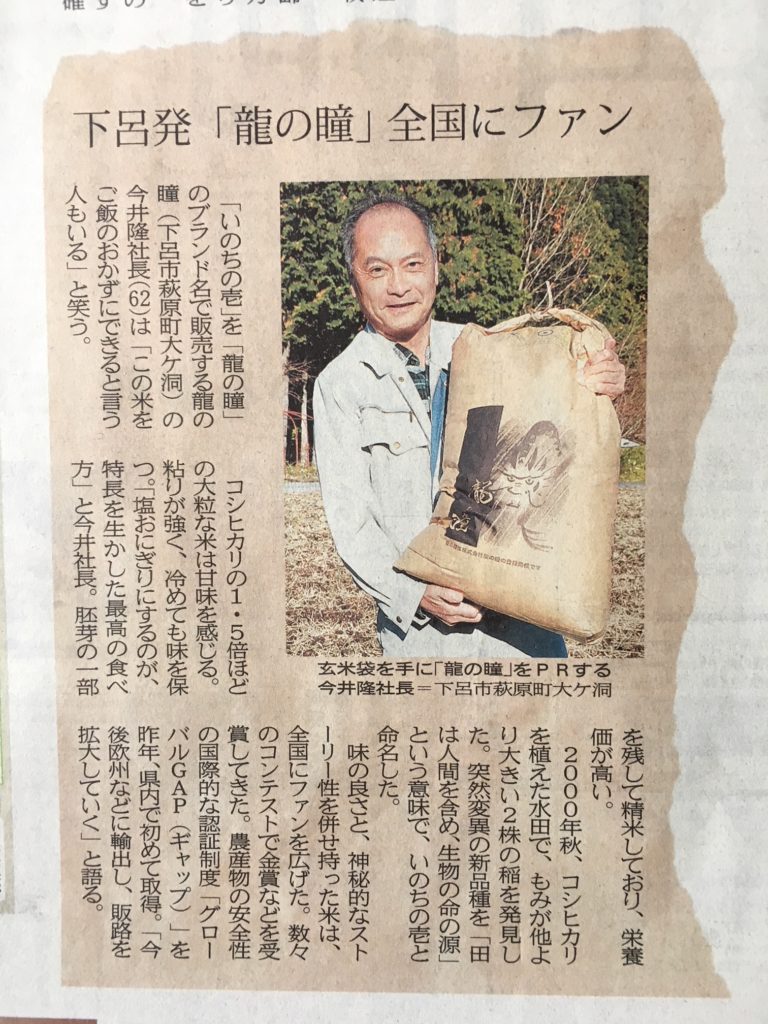 下呂発「龍の瞳」全国にファン
「いのちの壱」を「龍の瞳」
のブランド名で販売する龍の
瞳（下呂市萩原町大ケ洞）の
今井隆社長(62)は「この米を
ご飯のおかずにできると言う
人もいる」と笑う。
コシヒカリの1・5倍ほど
の大粒な米は甘味を感じる。
粘りが強く、冷めても味を保
つ。「塩おにぎりにするのが、
特長を生かした最高の食べ
方」と今井社長。胚芽の一部
を残して精米しており、栄養
価が高い。
2000年秋、コシヒカリ
を植えた水田で、もみが他よ
り大きい2株の稲を発見し
た。突然変異の新品種を「田
は人間を含め、生物の命の源」
という意味で、いのちの壱と
命名した。
味の良さと、神秘的なスト
ーリー性を併せ持った米は、
全国にファンを広げた。数々
のコンテストで金賞などを受
賞してきた。農産物の安全性
の国際的な認証制度「グロー
バルGAP（ギャップ）」を
昨年、県内で初めて取得。「今
後欧州などに輸出し、販路を
拡大していく」と語る。
龍
瞳
玄米袋を手に「龍の瞳」をPRする
今井隆社長＝下呂市萩原町大ケ洞